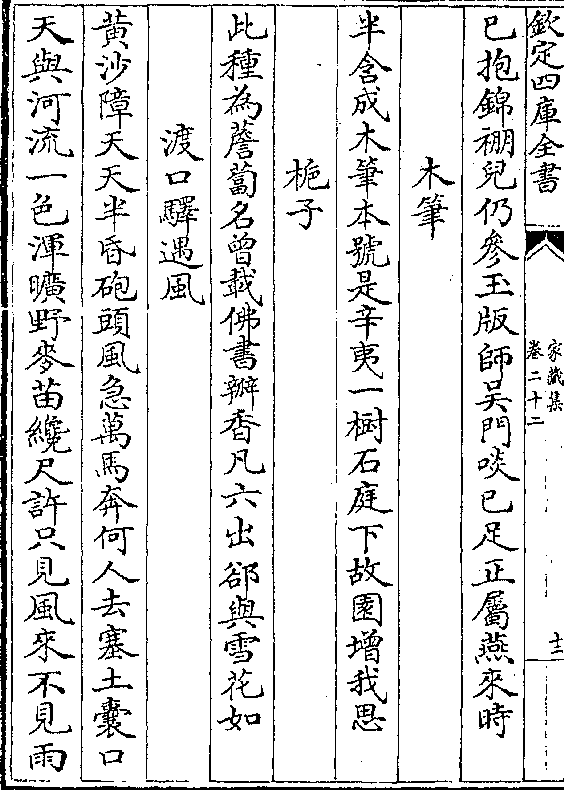 欽定四庫全書
家藏集
卷二十二
十二
已抱錦棚兒仍參玉版師吴門啖已足正屬燕來時
木筆
半含成木筆本號是辛夷一樹石庭下故園增我思
梔子
此種為薝蔔名曾載佛書瓣香凡六出郤與雪花如
渡口驛遇風
黄沙障天天半昏砲頭風急萬馬奔何人去塞土囊口
天與河流一色渾曠野麥苗纔尺許只見風來不見雨